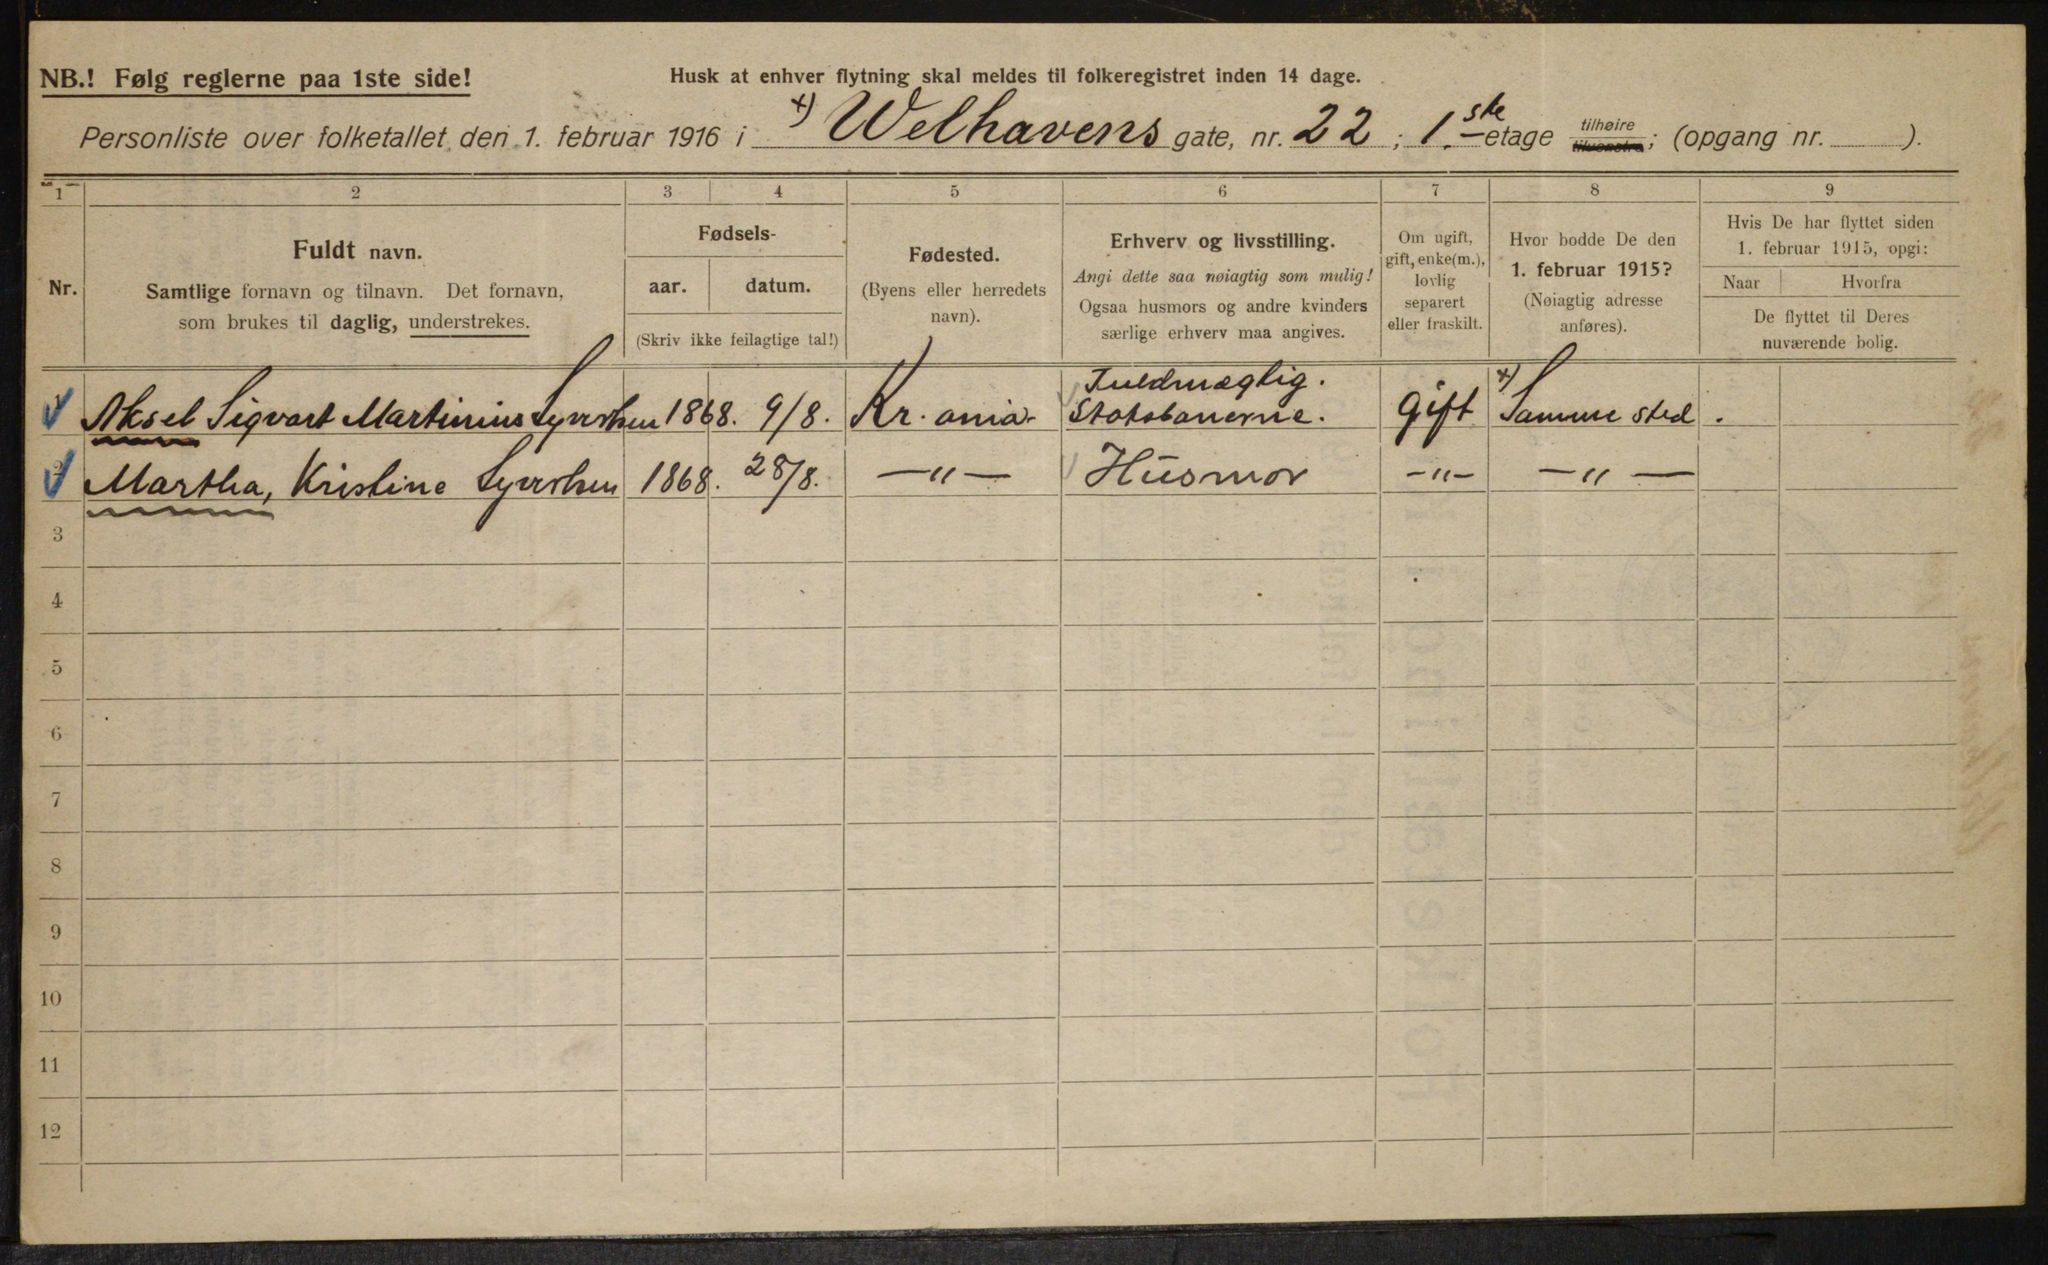 NB.! Følg reglerne paa 1ste side!
Husk at enhver flytning skal meldes til folkeregistret inden 14 dage.
Personliste over folketallet den 1. februar 1916 i x) Welhavens gate, nr. 22; 1.ste etage tilhøire tilvenstre; (opgang nr. ).
1 2 3 4 5 6 7 8 9
Nr.
Fuldt navn.
Samtlige fornavn og tilnavn. Det fornavn,
som brukes til daglig, understrekes.
Fødsels-
aar. datum.
(Skriv ikke feilagtige tal!)
Fødested.
(Byens eller herredets
navn).
Erhverv og livsstilling.
Angi dette saa nøiagtig som mulig!
Ogsaa husmors og andre kvinders
særlige erhverv maa angives.
Om ugift,
gift, enke(m.),
lovlig
separert
eller fraskilt.
Hvor bodde De den
1. februar 1915?
(Nøiagtig adresse
anføres).
Hvis De har flyttet siden
1. februar 1915, opgi:
Naar Hvorfra
De flyttet til Deres
nuværende bolig.
Fuldmægtig.
1 Aksel Sigvart Martinius Syvertsen 1868. 9/8. Kr. ania. Statsbanerne. Gift x) Samme sted.
2 Martha, Kristine Syvertsen 1868. 28/8. —"— Husmor —"— —"—
3
4
5
6
7
8
9
10
11
12